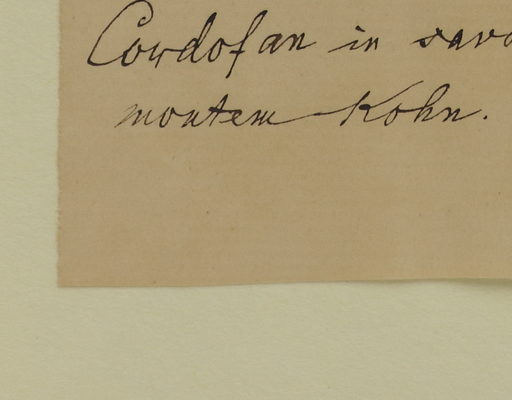 Cordofan in sava
montem Kohn.